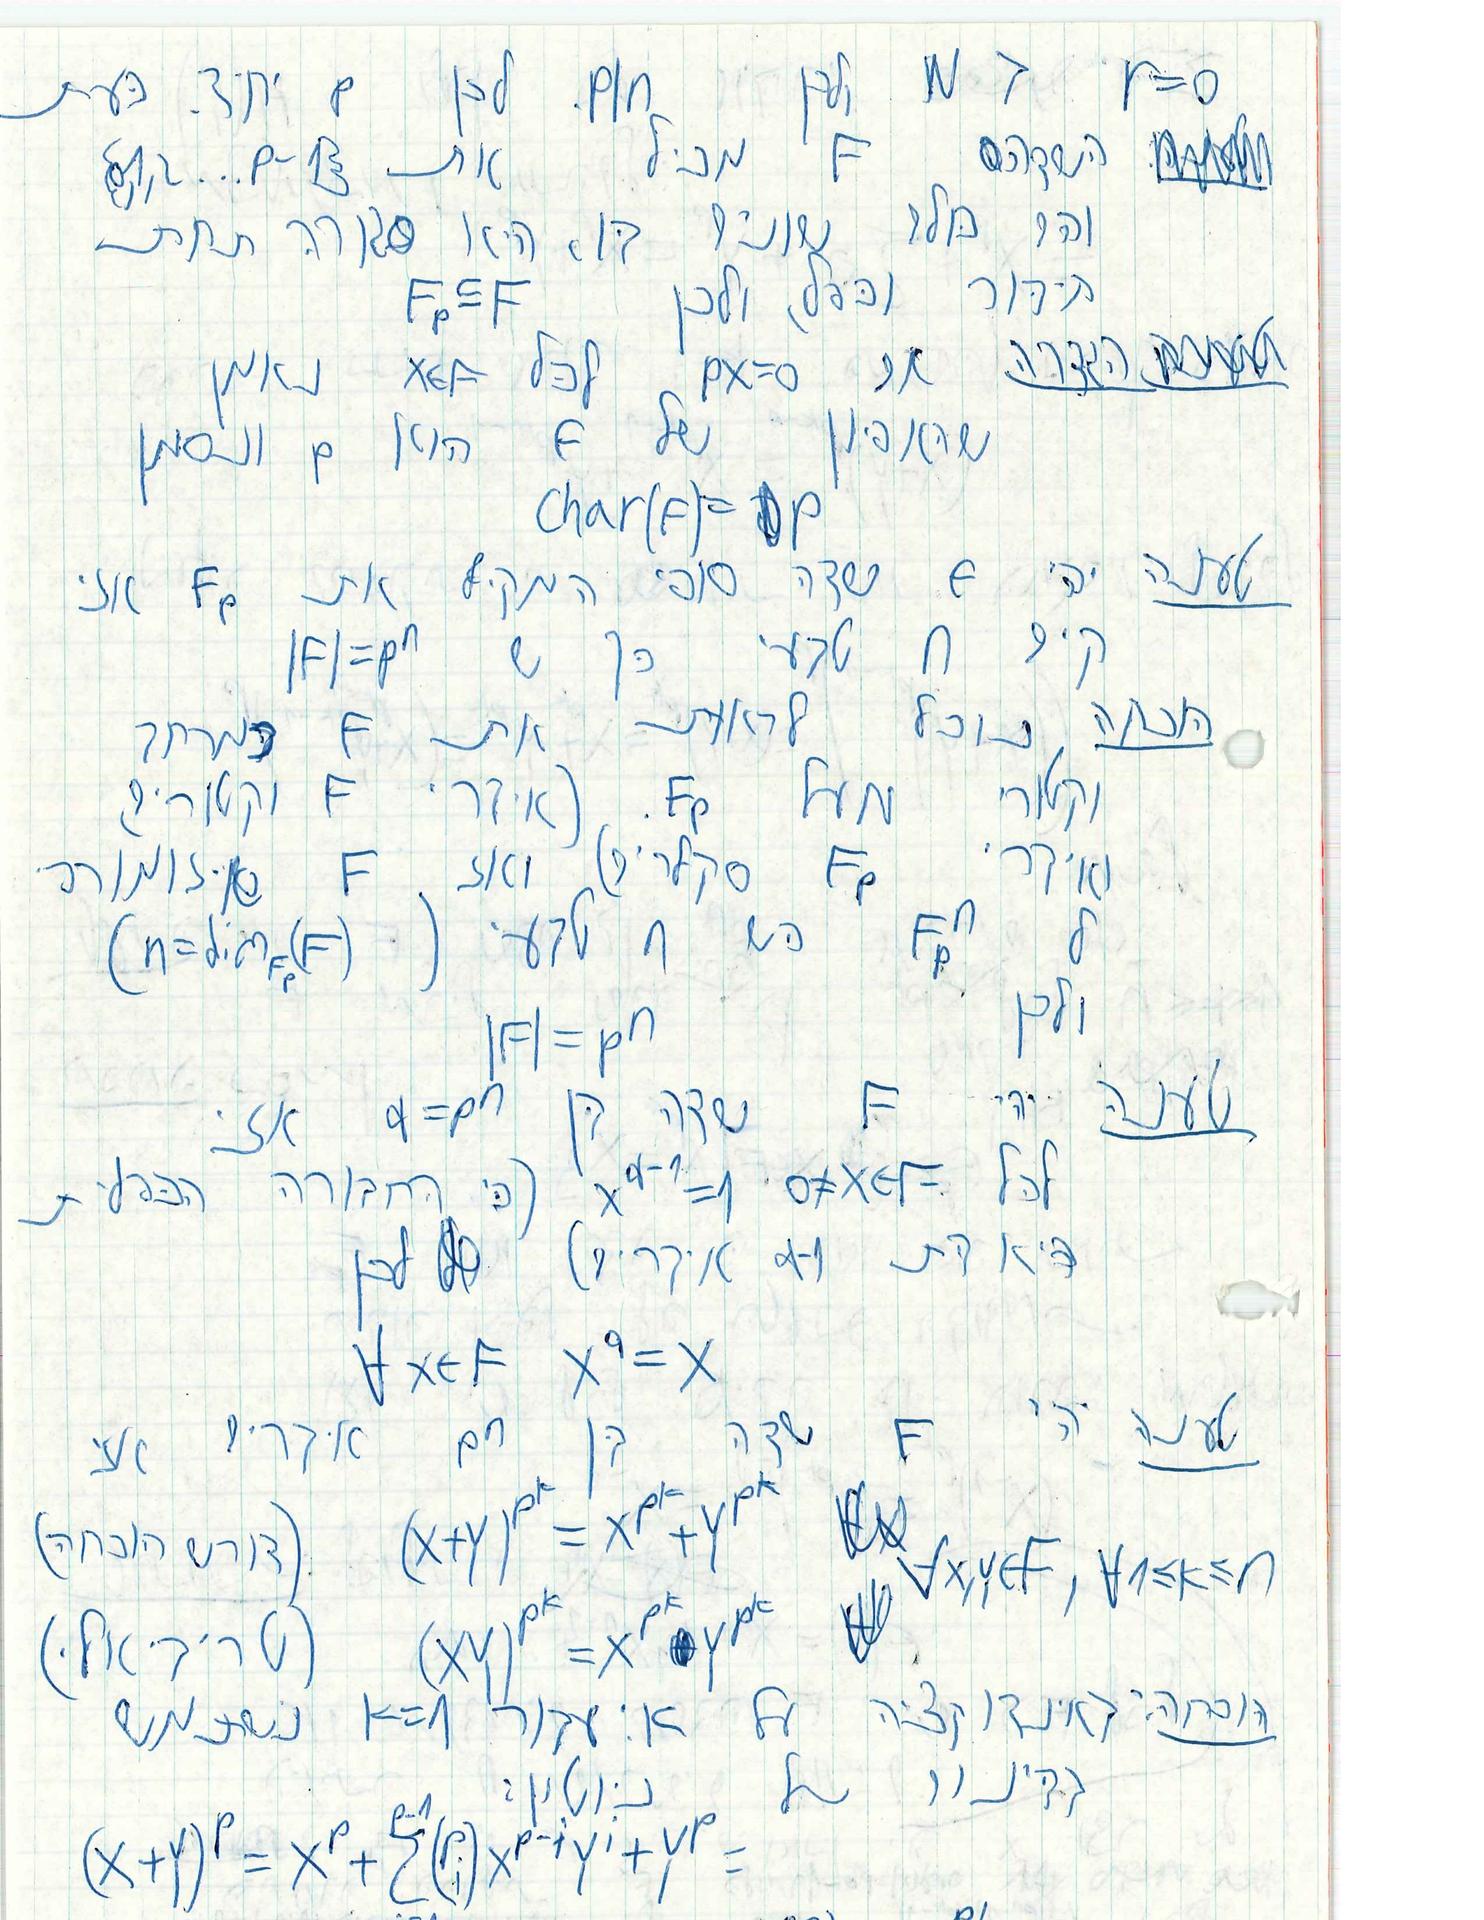 r=0 ולכן m|p. לכן p יחיד. כעת
השדה F מכיל את {0,1,...,p-1}
והם כולם שונים בו. היא סגורה תחת
חיבור וכפל, ולכן F_p⊆F
הגדרה אם px=0 לכל x∈F נאמר
שהאפיון של F הוא p ונסמן
char(F)=p
טענה יהי F שדה סופי המכיל את F_p אזי
קיים n טבעי כך ש |F|=p^n
הוכחה נוכל לראות את F כמרחב
וקטורי מעל F_p. (איברי F וקטורים
ואיברי F_p סקלרים) ואז F איזומורפי
ל F_p^n כש n טבעי (n=dim_{F_p}(F))
ולכן
|F|=p^n
טענה יהי F שדה בן q=p^n אזי
לכל 0≠x∈F x^{q-1}=1 (כי החבורה הכפלית
היא בת q-1 איברים) לכן
∀x∈F x^q=x
טענה יהי F שדה בן p^n איברים אזי
(x+y)^{p^k}=x^{p^k}+y^{p^k} (דורש הוכחה)
∀x,y∈F, ∀1≤k≤n
(xy)^{p^k}=x^{p^k}y^{p^k} (טריביאלי)
הוכחה: באינדוקציה על k: עבור k=1 נשתמש
בבינום של ניוטון:
(x+y)^p=x^p+∑^{p-1}(p i)x^{p-i}y^i+y^p=